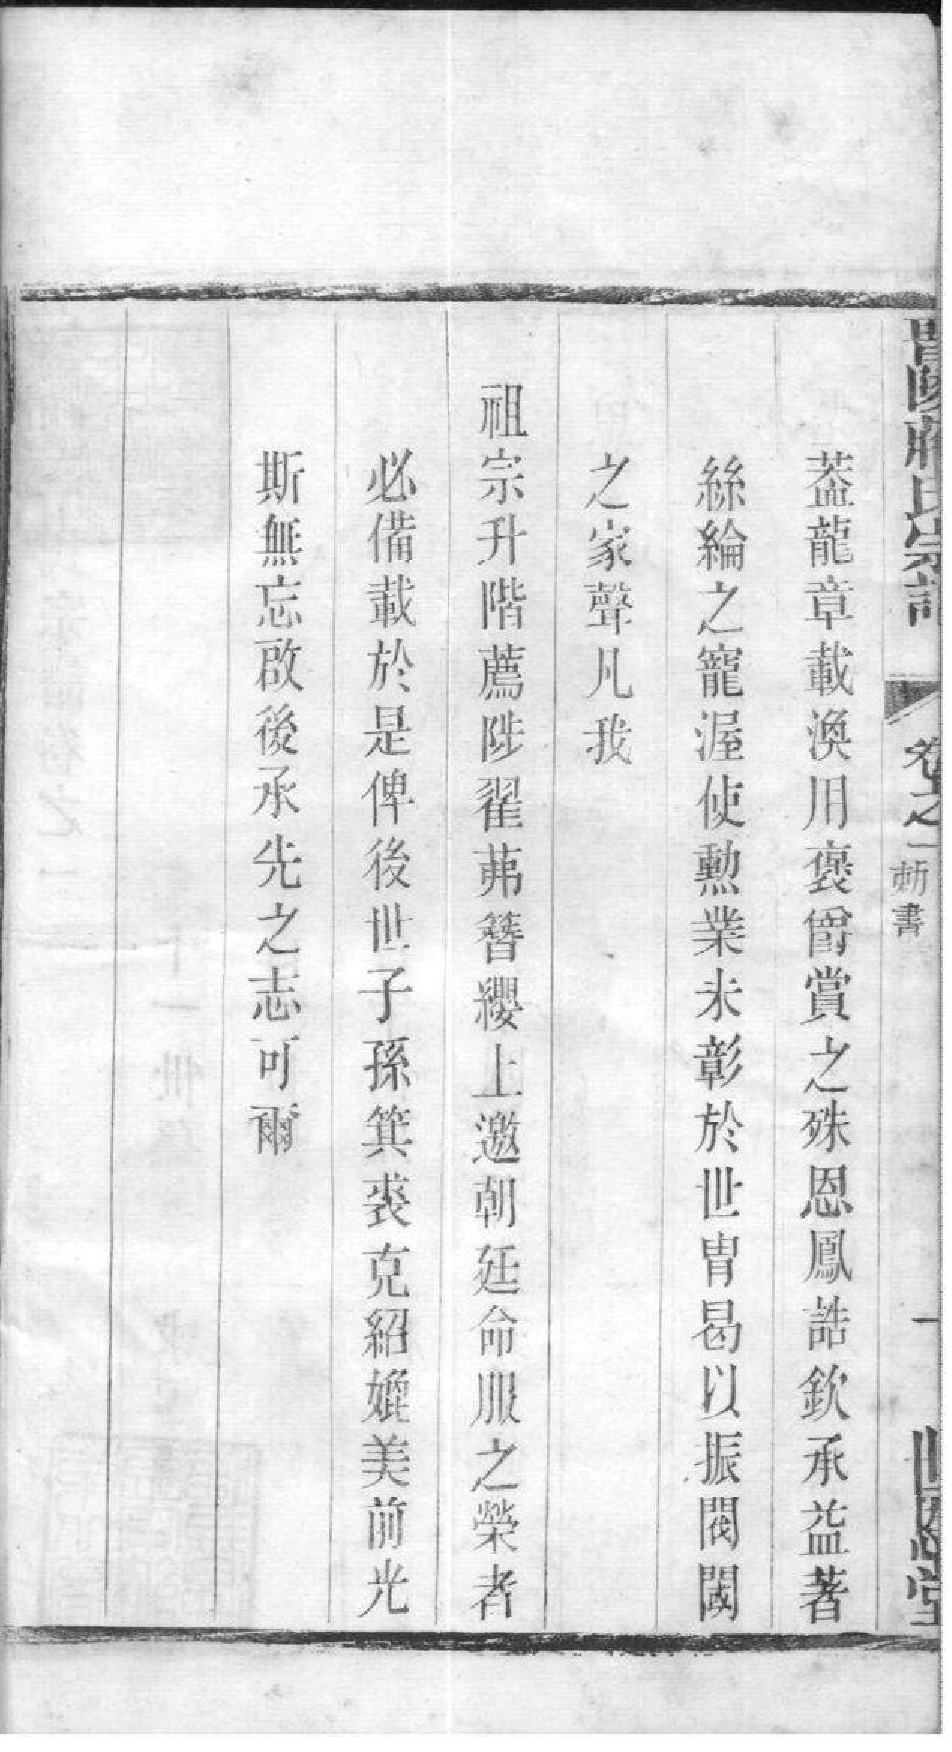 晋陵蔣氏宗譜
卷之一
勅書
一
世恩堂
葢龍章載渙用褒爵賞之殊恩鳳誥欽承益著
絲綸之寵渥使勲業未彰於世冑曷以振閥閱
之家聲凡我
祖宗升階薦陟翟茀簪纓上邀朝廷命服之榮者
必備載於是俾後世子孫箕裘克紹媲美前光
斯無忘啟後承先之志可爾